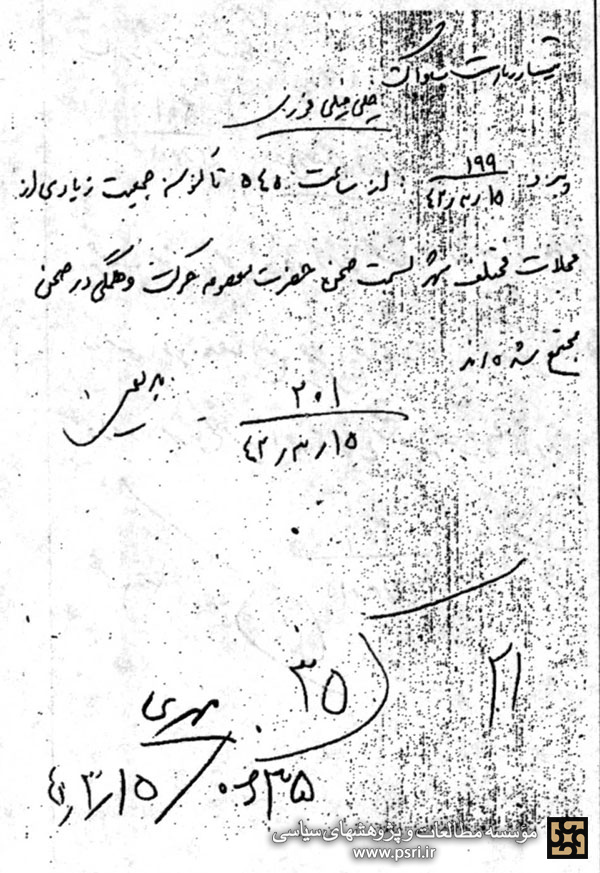 تیمسار ریاست ساواک
خیلی خیلی فوری
پیرو ۱۹۹ ۴۲٫۳٫۱۵ از ساعت ۵۴۵ تا کنون جمعیت زیادی از
محلات مختلف شهر بسمت صحن حضرت معصومه حرکت و همگی در صحن
مجتمع شده اند
۲۰۱ بدیعی
۴۲٫۳٫۱۵
۲۱ ۳۵
مهدی
۰۶۳۵ ۴۲٫۳٫۱۵
مؤسسه مطالعات و پژوهشهای سیاسی
www.psri.ir